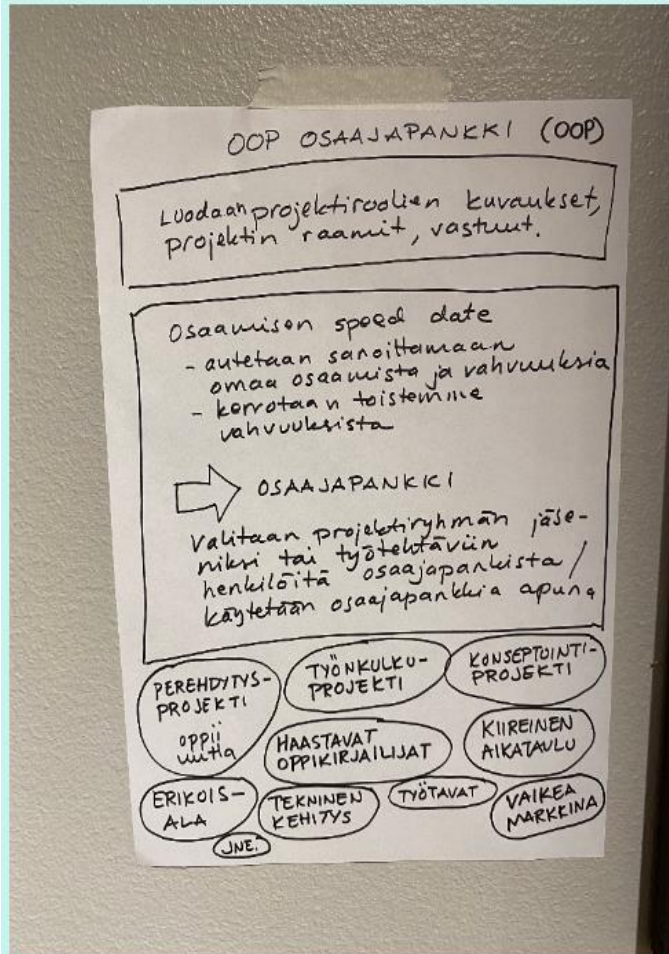 OOP OSAAJAPANKKI (OOP)
Luodaan projektiroolien kuvaukset,
projektin raamit, vastuut.
Osaamisen speed date
- autetaan sanoittamaan
omaa osaamista ja vahvuuksia
- kerrotaan toistemme
vahvuuksista
OSAAJAPANKKI
Valitaan projektiryhmän jäse-
niksi tai työtehtäviin
henkilöitä osaajapankista /
käytetään osaajapankkia apuna
PEREHDYTYS-
PROJEKTI
OPPII
uutta
TYÖNKULKU-
PROJEKTI
KONSEPTOINTI-
PROJEKTI
HAASTAVAT
OPPIKIRJAILIJAT
KIIREINEN
AIKATAULU
ERIKOIS-
ALA
TEKNINEN
KEHITYS
TYÖTAVAT
VAIKEA
MARKKINA
JNE.